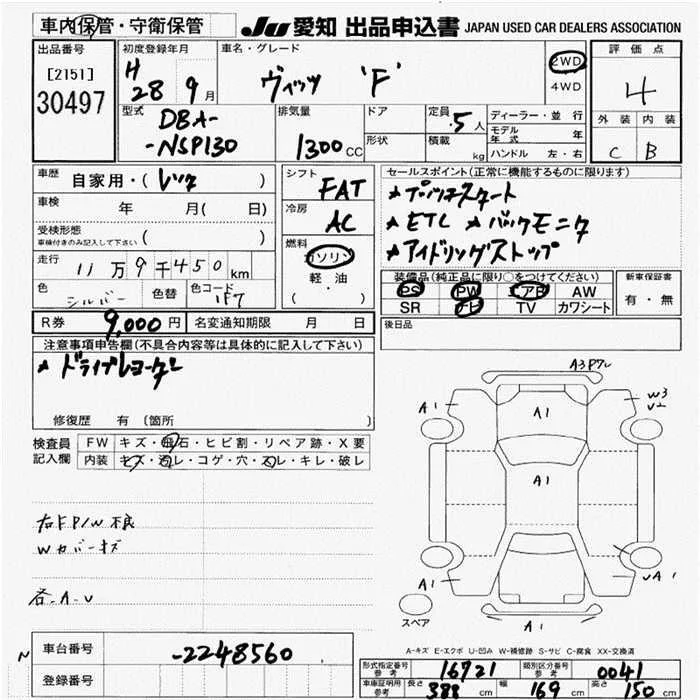 車内保管・守衛保管 JU 愛知 出品申込書 JAPAN USED CAR DEALERS ASSOCIATION
出品番号 初度登録年月 車名・グレード 2WD 評価点
[2151] H 28 9月 ヴィッツ 'F' 4WD 4
30497 型式 排気量 ドア 定員 5人 ディーラー・並行 外装 内装
DBA- 1300CC 形状 積載 kg モデル年式 年 C B
-NSP130 ハンドル 左・右
車歴 自家用・(レンタ) シフト FAT セールスポイント(正常に機能するものに限ります)
車検 年 月( 日) 冷房 AC ★プッシュスタート
受検形態 ( ) ★ETC ★バックモニタ
車検付きのみ記入して下さい
走行 11万9千450km 燃料 ガソリン ★アイドリングストップ
色 シルバー 色替 色コード 1F7 軽・油 ( )
装備品(純正品に限り○をつけてください) 新車保証書
PS PW エアB AW 有・無
SR ナビ TV カワシート
R券 9,000円 名変通知期限 月 日 後日品
注意事項申告欄(不具合内容等は具体的に記入して下さい)
★ドライブレコーダー
修復歴 有 (箇所 )
検査員 FW キズ・飛石・ヒビ割・リペア跡・X要
記入欄 内装 キズ・汚レ・コゲ・穴・スレ・キレ・破レ
右F P/W不良
Wカバーキズ
各-A-U
A3PアL
A1 A1 W3
U2
A1
A1 UA1
A1
スペア
A-キズ E-エクボ U-凹み W-補修跡 S-サビ C-腐食 XX-交換済
N 車台番号 -2248560
登録番号
形式指定番号 参考 16721 類別区分番号 参考 0041
車車証明用 参考 長さ 388cm 幅 169cm 高さ 150cm